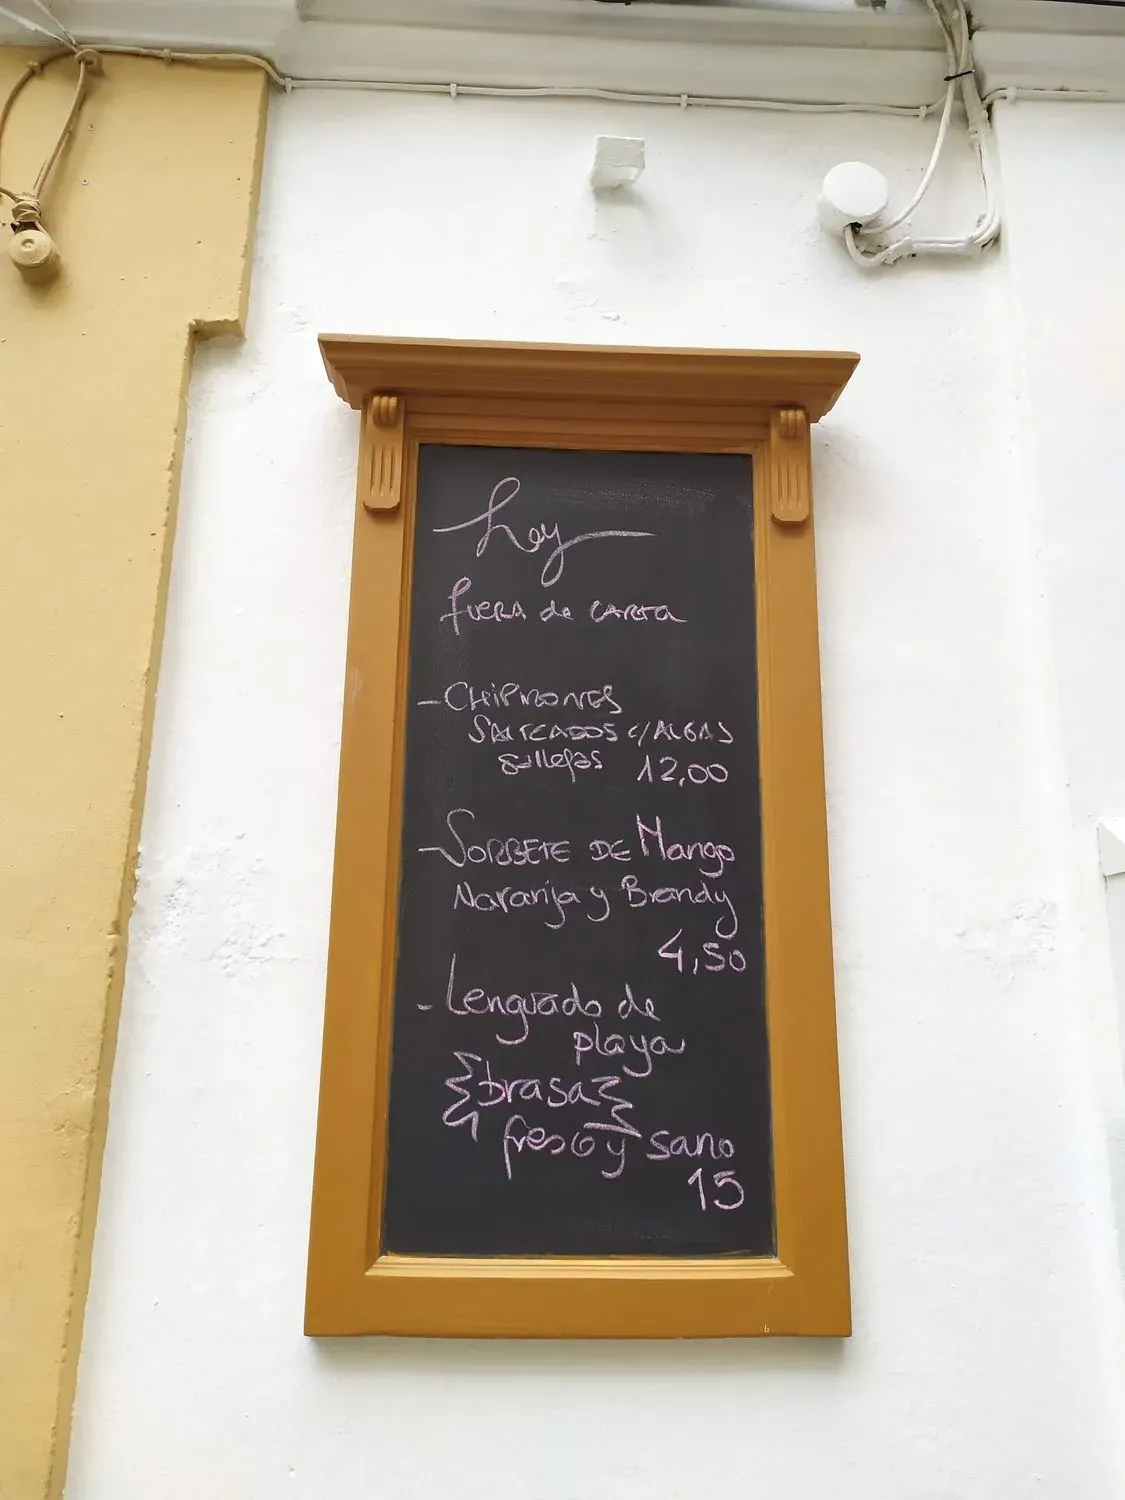 hoy
fuera de CARTA
- CHIPIRONES
SALTEADOS c/ALGAS
gallegas 12,00
- SORBETE DE Mango
Naranja y Brandy
4,50
- Lenguado de
playa
brasa
fresco y sano
15